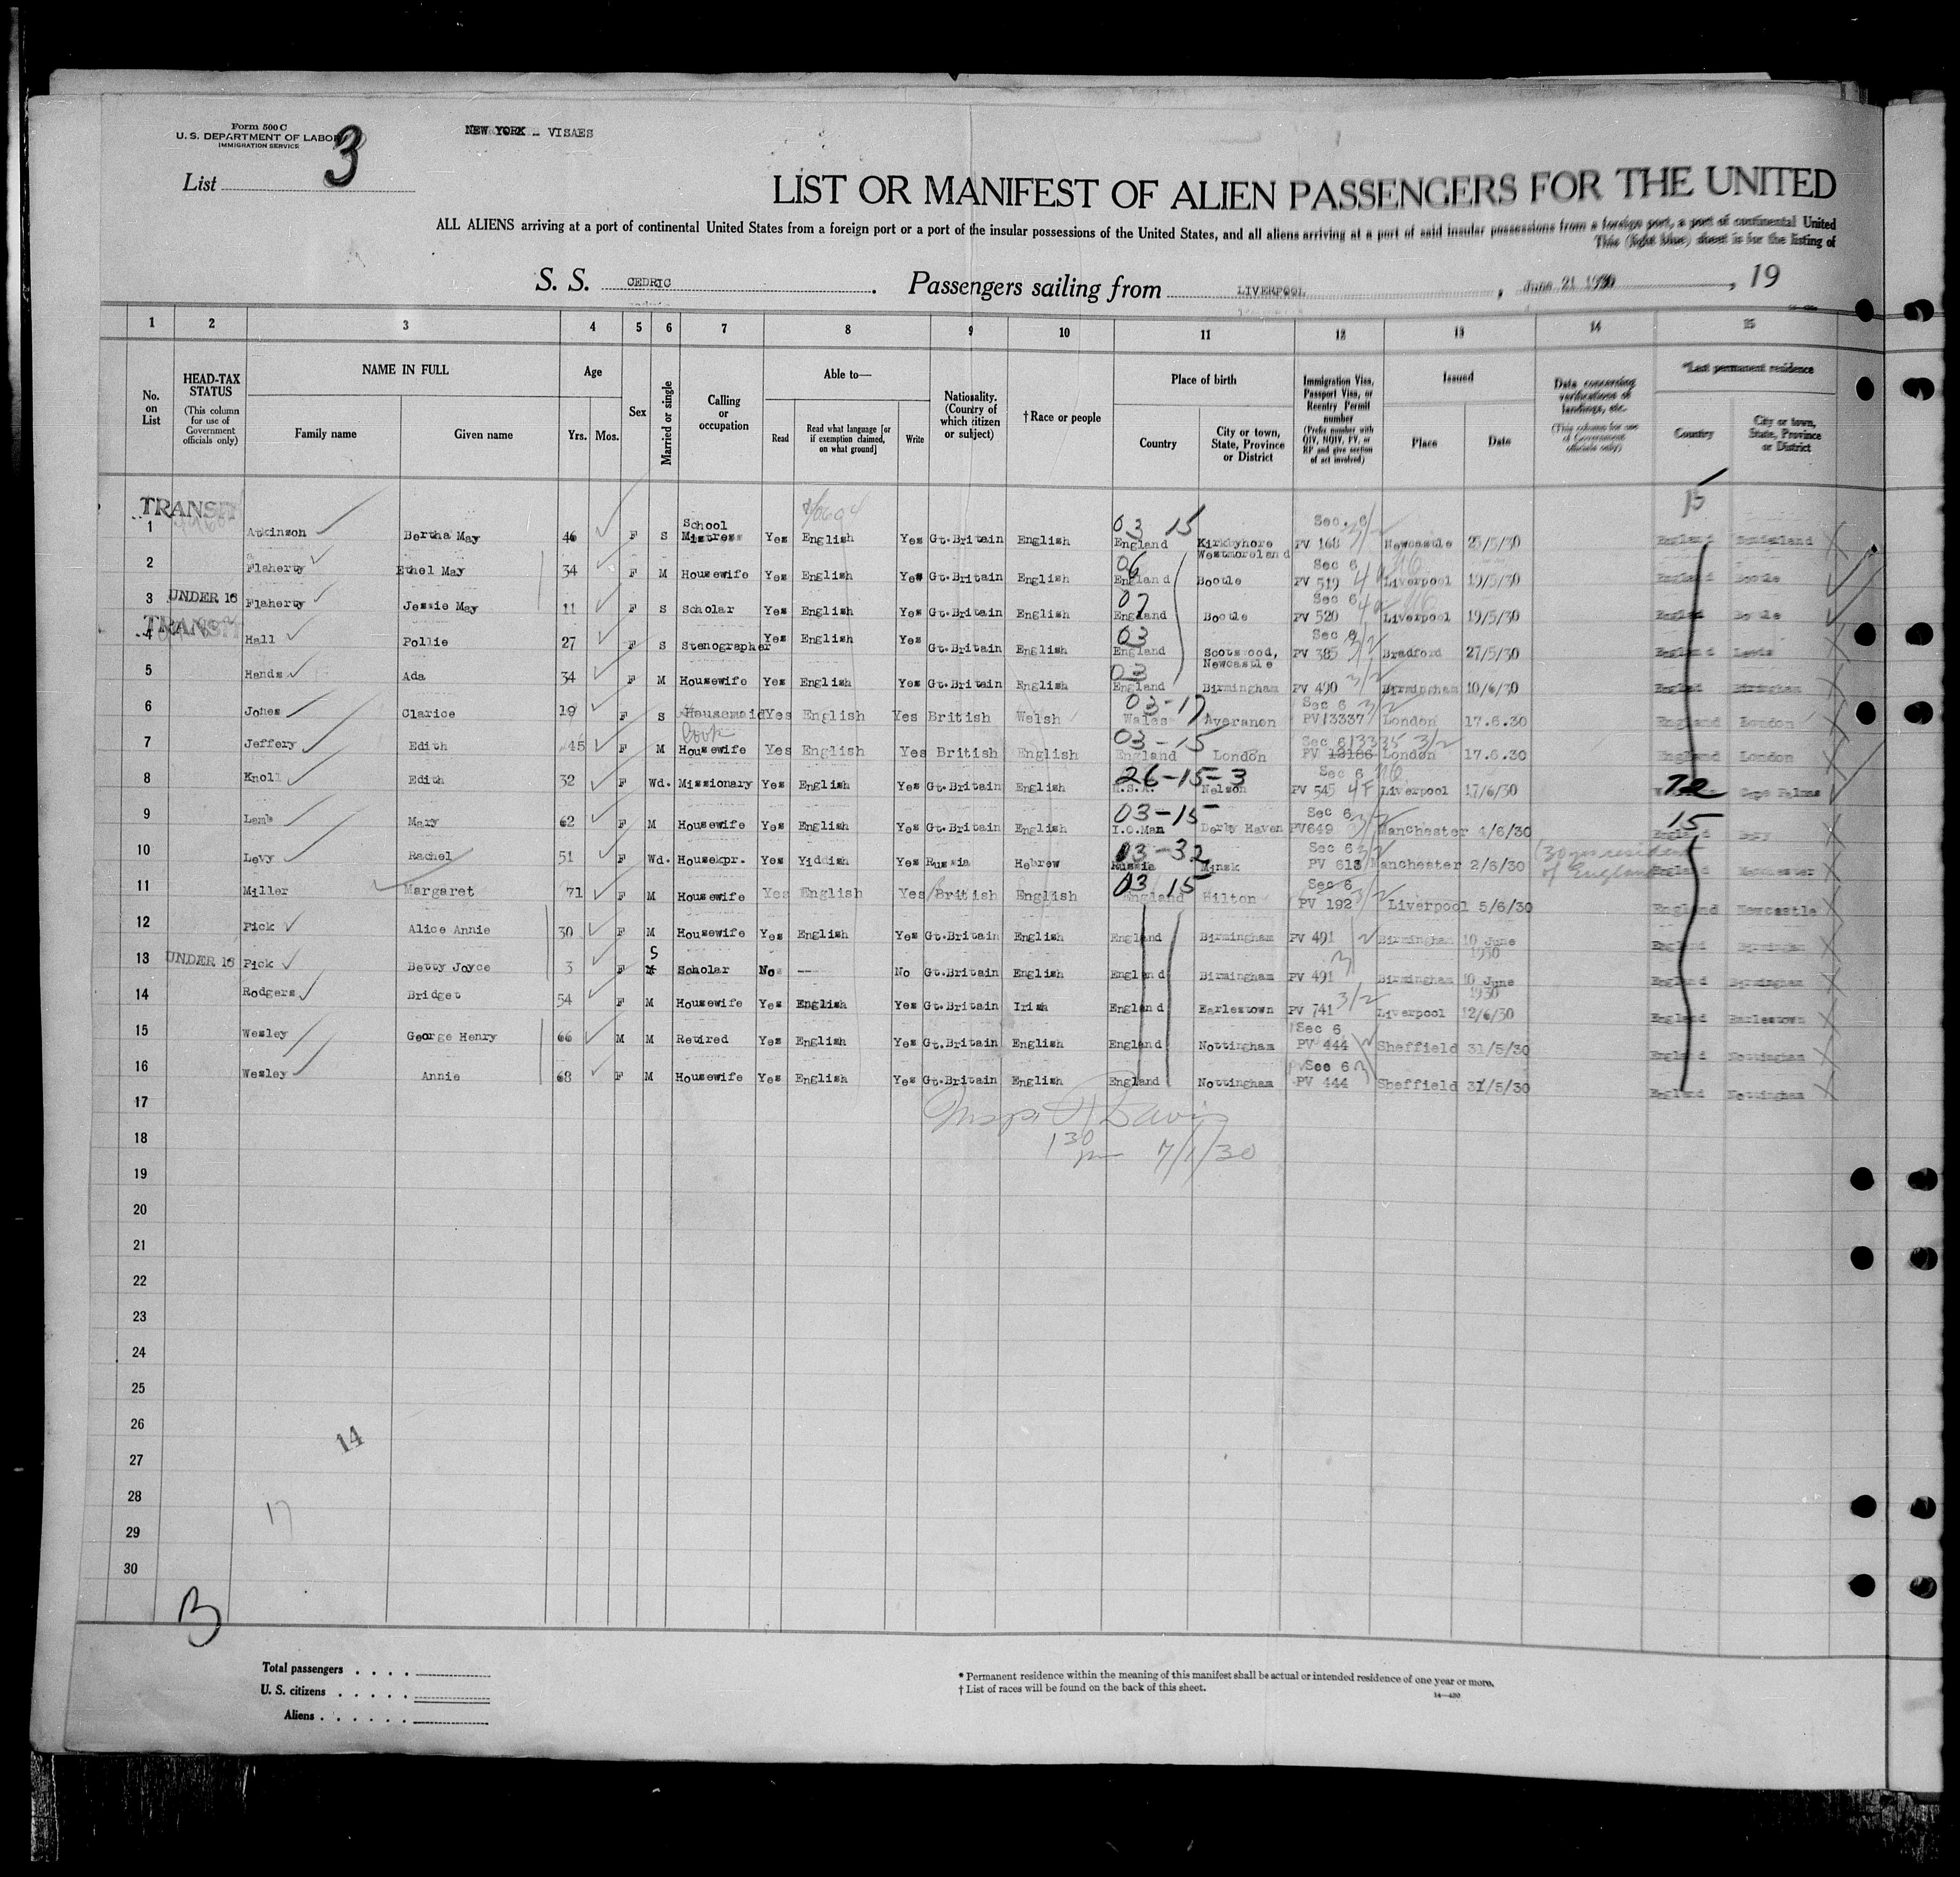 Form 500 C
U. S. DEPARTMENT OF LABOR
IMMIGRATION SERVICE
NEW YORK - VISAES
List 3
LIST OR MANIFEST OF ALIEN PASSENGERS FOR THE UNITED
ALL ALIENS arriving at a port of continental United States from a foreign port or a port of the insular possessions of the United States, and all aliens arriving at a port of said insular possessions from a foreign port, a port of continental United
This (light blue) sheet is for the listing of
S. S. CEDRIC. Passengers sailing from LIVERPOOL, June 21 1930, 19
1 2 3 4 5 6 7 8 9 10 11 12 13 14 15
No. on List
HEAD-TAX STATUS (This column for use of Government officials only)
NAME IN FULL
Family name Given name
Age
Yrs. Mos.
Sex
Married or single
Calling or occupation
Able to—
Read
Read what language [or if exemption claimed, on what ground]
Write
Nationality. (Country of which citizen or subject)
†Race or people
Place of birth
Country
City or town, State, Province or District
Immigration Visa, Passport Visa, or Reentry Permit number
(Prefix number with QIV, NQIV, PV, or RP and give section of act involved)
Issued
Place Date
Data concerning verifications of landings, etc.
(This column for use of Government officials only)
*Last permanent residence
Country
City or town, State, Province or District
TRANSIT 15
1 Atkinson Bertha May 46 F S School Mistress Yes English Yes Gt.Britain English 03 15 England Kirkbyhore Westmoreland Sec. 6 PV 168 3/2 Newcastle 23/5/30 England Sunderland
2 Flaherty Ethel May 34 F M Housewife Yes English Yes Gt.Britain English 06 England Bootle Sec 6 PV 519 Liverpool 19/5/30 England Bootle
3 UNDER 16 Flaherty Jessie May 11 F S Scholar Yes English Yes Gt.Britain English 07 England Bootle Sec 6 PV 520 Liverpool 19/5/30 England Bootle
TRANSIT
4 Hall Pollie 27 F S Stenographer Yes English Yes Gt.Britain English 03 England Scotswood, Newcastle Sec 6 PV 385 3/2 Bradford 27/5/30 England Leeds
5 Hands Ada 34 F M Housewife Yes English Yes Gt.Britain English 03 England Birmingham PV 490 3/2 Birmingham 10/6/30 England Birmingham
6 Jones Clarice 19 F S Housemaid Yes English Yes British Welsh 03-17 Wales Averanon Sec 6 3/2 PV13337 London 17.6.30 England London
7 Jeffery Edith 45 F M Cook Housewife Yes English Yes British English 03-15 England London Sec 6 13335 3/2 PV London 17.6.30 England London
8 Knoll Edith 32 F Wd. Missionary Yes English Yes Gt.Britain English 26-15-3 U.S.A. Nelson Sec 6 PV 545 4F Liverpool 17/6/30 72 Cape Palmas
9 Lamb Mary 62 F M Housewife Yes English Yes Gt.Britain English 03-15 I.O.Man Derby Haven Sec 6 PV649 3/2 Manchester 4/6/30 15 England Bury
10 Levy Rachel 51 F Wd. Housekpr. Yes Yiddish Yes Russia Hebrew 03-32 Russia Minsk Sec 6 3/2 PV 618 Manchester 2/6/30 (30 yrs resident of England England Manchester
11 Miller Margaret 71 F M Housewife Yes English Yes British English 03 15 England Hilton Sec 6 PV 192 3/2 Liverpool 5/6/30 England Newcastle
12 Pick Alice Annie 30 F M Housewife Yes English Yes Gt.Britain English England Birmingham PV 491 Birmingham 10 June 1930 England Birmingham
13 UNDER 16 Pick Betty Joyce 3 F S Scholar No -- No Gt.Britain English England Birmingham PV 491 Birmingham 10 June 1930 England Birmingham
14 Rodgers Bridget 54 F M Housewife Yes English Yes Gt.Britain Irish England Earlestown PV 741 3/2 Liverpool 12/6/30 England Earlestown
15 Wesley George Henry 66 M M Retired Yes English Yes Gt.Britain English England Nottingham Sec 6 PV 444 Sheffield 31/5/30 England Nottingham
16 Wesley Annie 68 F M Housewife Yes English Yes Gt.Britain English England Nottingham Sec 6 PV 444 Sheffield 31/5/30 England Nottingham
17
18 130 pm 7/1/30
19
20
21
22
23
24
25
26
27
28
29
30
14
17
B
Total passengers . . . .
U. S. citizens . . . . .
Aliens . . . . . .
* Permanent residence within the meaning of this manifest shall be actual or intended residence of one year or more.
† List of races will be found on the back of this sheet.
14—430